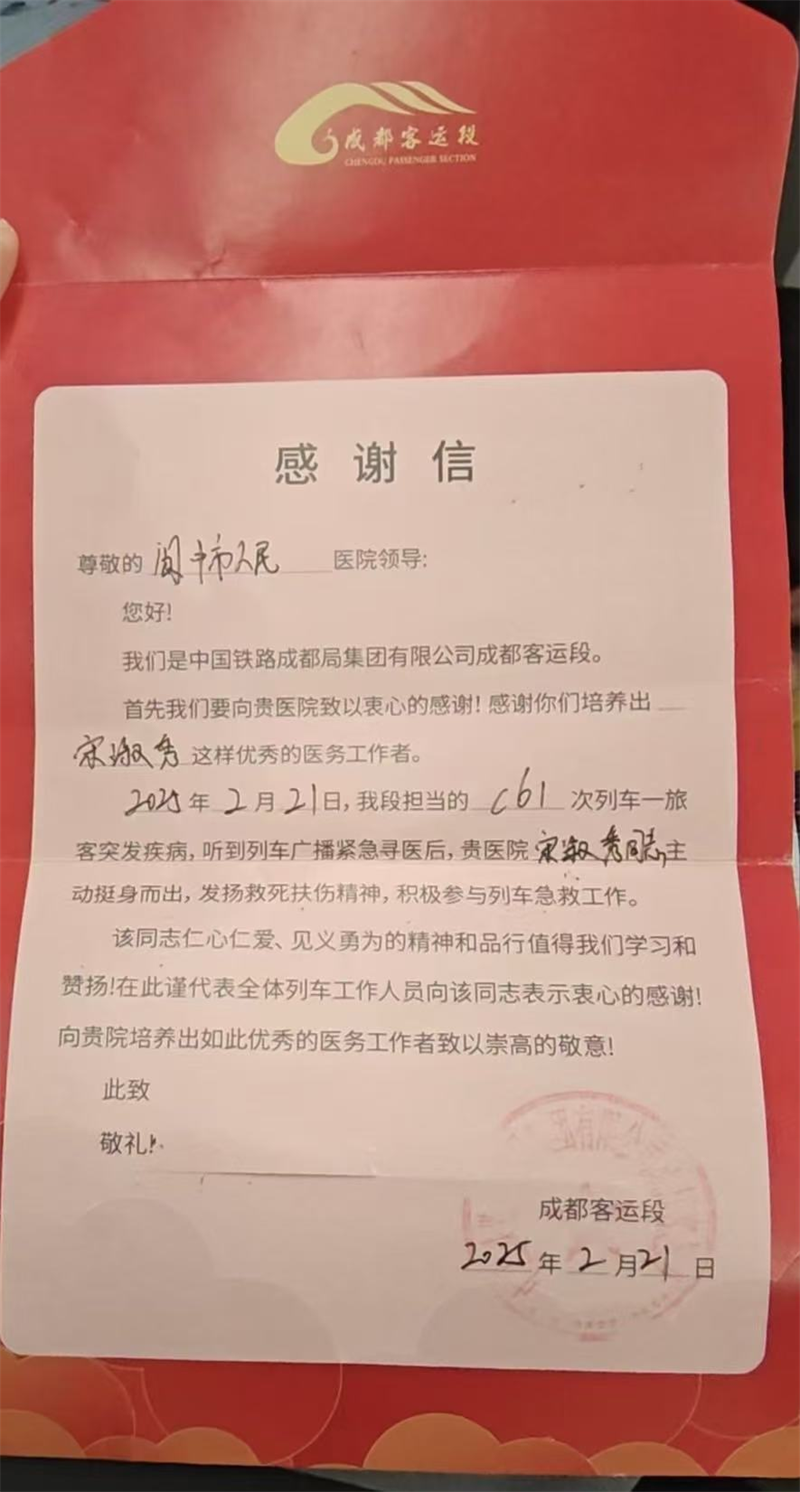 成都客运段
CHENGDU PASSENGER SECTION
感谢信
尊敬的 阆中市人民 医院领导:
您好!
我们是中国铁路成都局集团有限公司成都客运段。
首先我们要向贵医院致以衷心的感谢!感谢你们培养出
宋淑秀 这样优秀的医务工作者。
2025年2月21日,我段担当的 C61 次列车一旅
客突发疾病,听到列车广播紧急寻医后,贵医院 宋淑秀同志,主
动挺身而出,发扬救死扶伤精神,积极参与列车急救工作。
该同志仁心仁爱、见义勇为的精神和品行值得我们学习和
赞扬!在此谨代表全体列车工作人员向该同志表示衷心的感谢!
向贵院培养出如此优秀的医务工作者致以崇高的敬意!
此致
敬礼!
成都客运段
2025年2月21日